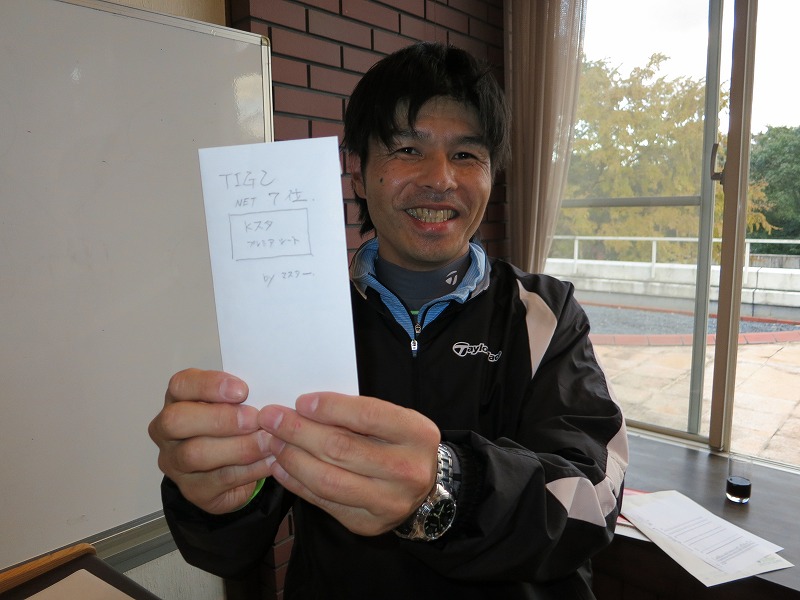 TIGC
NET 7位.
Kスタ
プレミアシート
by ミスター
TaylorMad